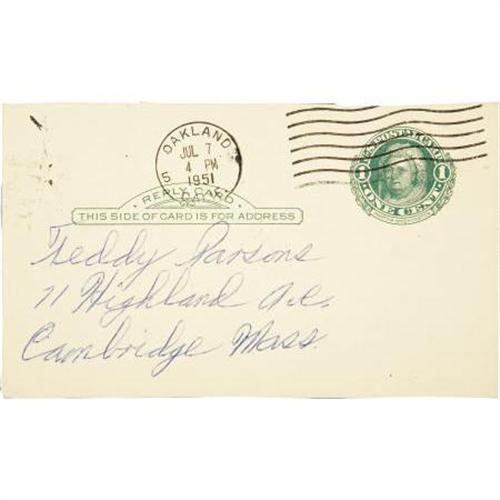 OAKLAND
JUL 7
4 PM
5 1951
CALIF.
U.S. POSTAL CARD
1 ONE CENT 1
REPLY CARD
THIS SIDE OF CARD IS FOR ADDRESS
Teddy Parsons
71 Highland Ave.
Cambridge Mass.